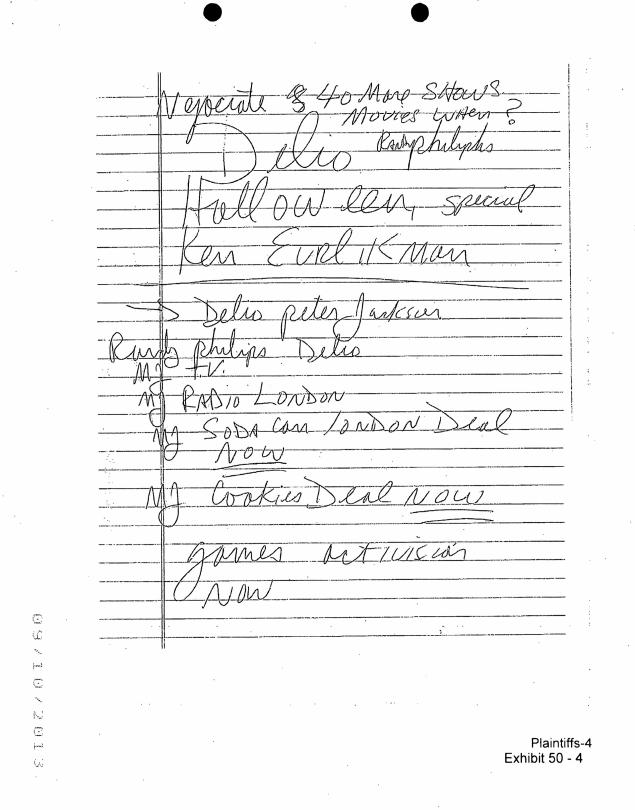 Negociate 40 More SHows
Movies WHen?
Delio Randy philiphs
Holloween, special
Ken EurlikMan
→ Delio peter Jackson
Randy philips Delio
MJ T.V.
MJ RADIO LONDON
MJ SODA Can LONDON Deal
NOW
MJ Cookies Deal NOW
games activision
NOW
09/10/2013
Plaintiffs-4
Exhibit 50 - 4